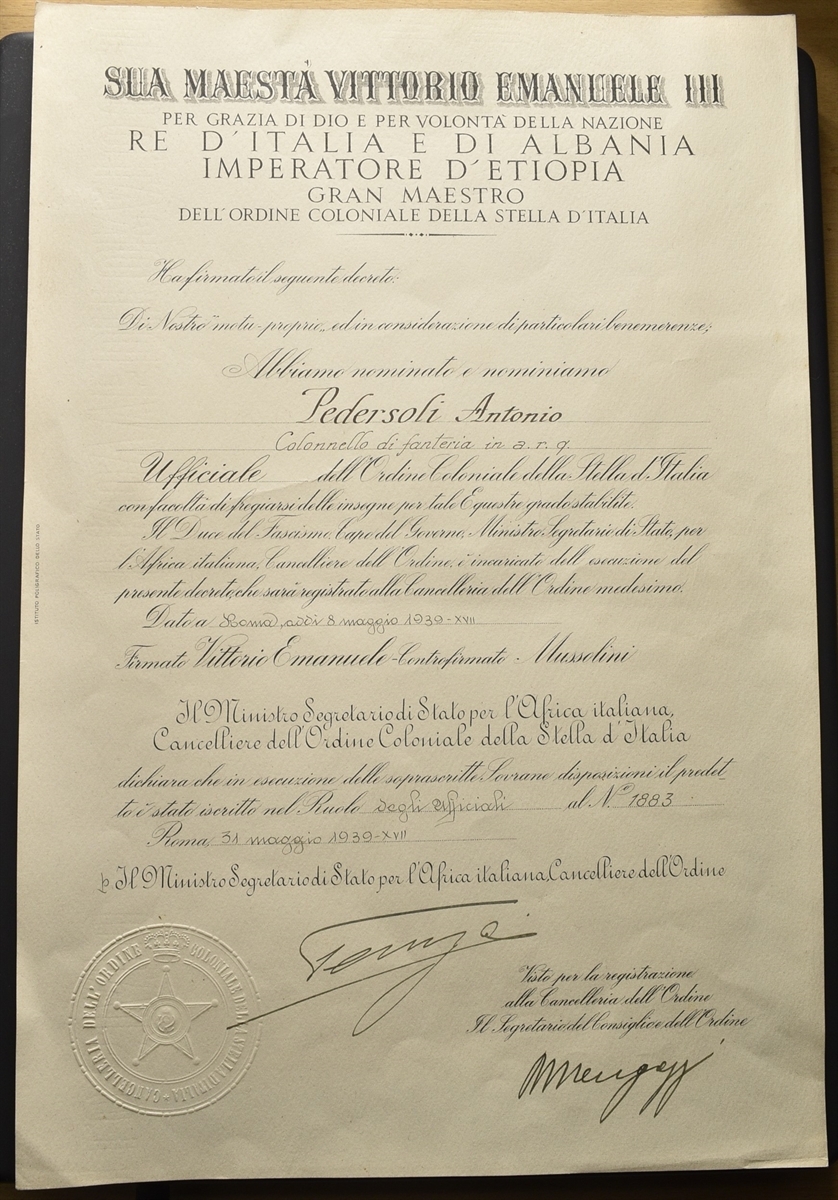 SUA MAESTÀ VITTORIO EMANUELE III
PER GRAZIA DI DIO E PER VOLONTÀ DELLA NAZIONE
RE D'ITALIA E DI ALBANIA
IMPERATORE D'ETIOPIA
GRAN MAESTRO
DELL'ORDINE COLONIALE DELLA STELLA D'ITALIA
Ha firmato il seguente decreto:
Di Nostro "motu-proprio„ ed in considerazione di particolari benemerenze;
Abbiamo nominato e nominiamo
Pedersoli Antonio
Colonnello di fanteria in a.r.q.
Ufficiale dell'Ordine Coloniale della Stella d'Italia
con facoltà di fregiarsi delle insegne per tale Equestre grado stabilite.
Il Duce del Fascismo, Capo del Governo, Ministro Segretario di Stato, per
l'Africa italiana, Cancelliere dell'Ordine, è incaricato dell'esecuzione del
presente decreto, che sarà registrato alla Cancelleria dell'Ordine medesimo.
Dato a Roma, addì 8 maggio 1939-XVII
Firmato Vittorio Emanuele - Controfirmato - Mussolini
Il Ministro Segretario di Stato per l'Africa italiana,
Cancelliere dell'Ordine Coloniale della Stella d'Italia
dichiara che in esecuzione delle soprascritte Sovrane disposizioni il predet-
to è stato iscritto nel Ruolo degli Ufficiali al N.º 1883
Roma, 31 maggio 1939-XVII
p. Il Ministro Segretario di Stato per l'Africa italiana, Cancelliere dell'Ordine
Visto per la registrazione
alla Cancelleria dell'Ordine
Il Segretario del Consiglio e dell'Ordine
CANCELLERIA DELL'ORDINE COLONIALE DELLA STELLA D'ITALIA
ISTITUTO POLIGRAFICO DELLO STATO